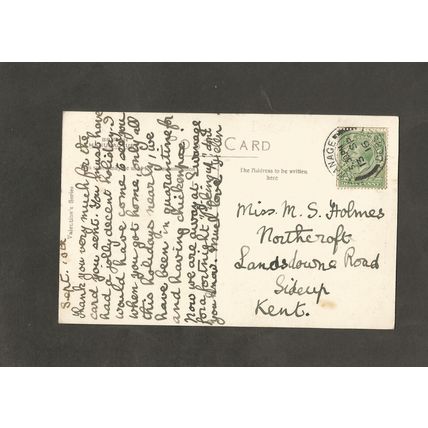 Sept. 15th
Thank you very much for the
card you sent. You must have
had a jolly decent holiday. I
would have come to see you
when you got home, only all
this holidays nearly, we
have been in quarantine for
and having chickenpox!
Now we are away at Swanage
for a fortnight
you know. Much love
CARD
The Address to be written
here
Valentine's Series
SWANAGE
Miss. M. S. Holmes
Northcroft
Lansdowne Road
Sidcup
Kent.